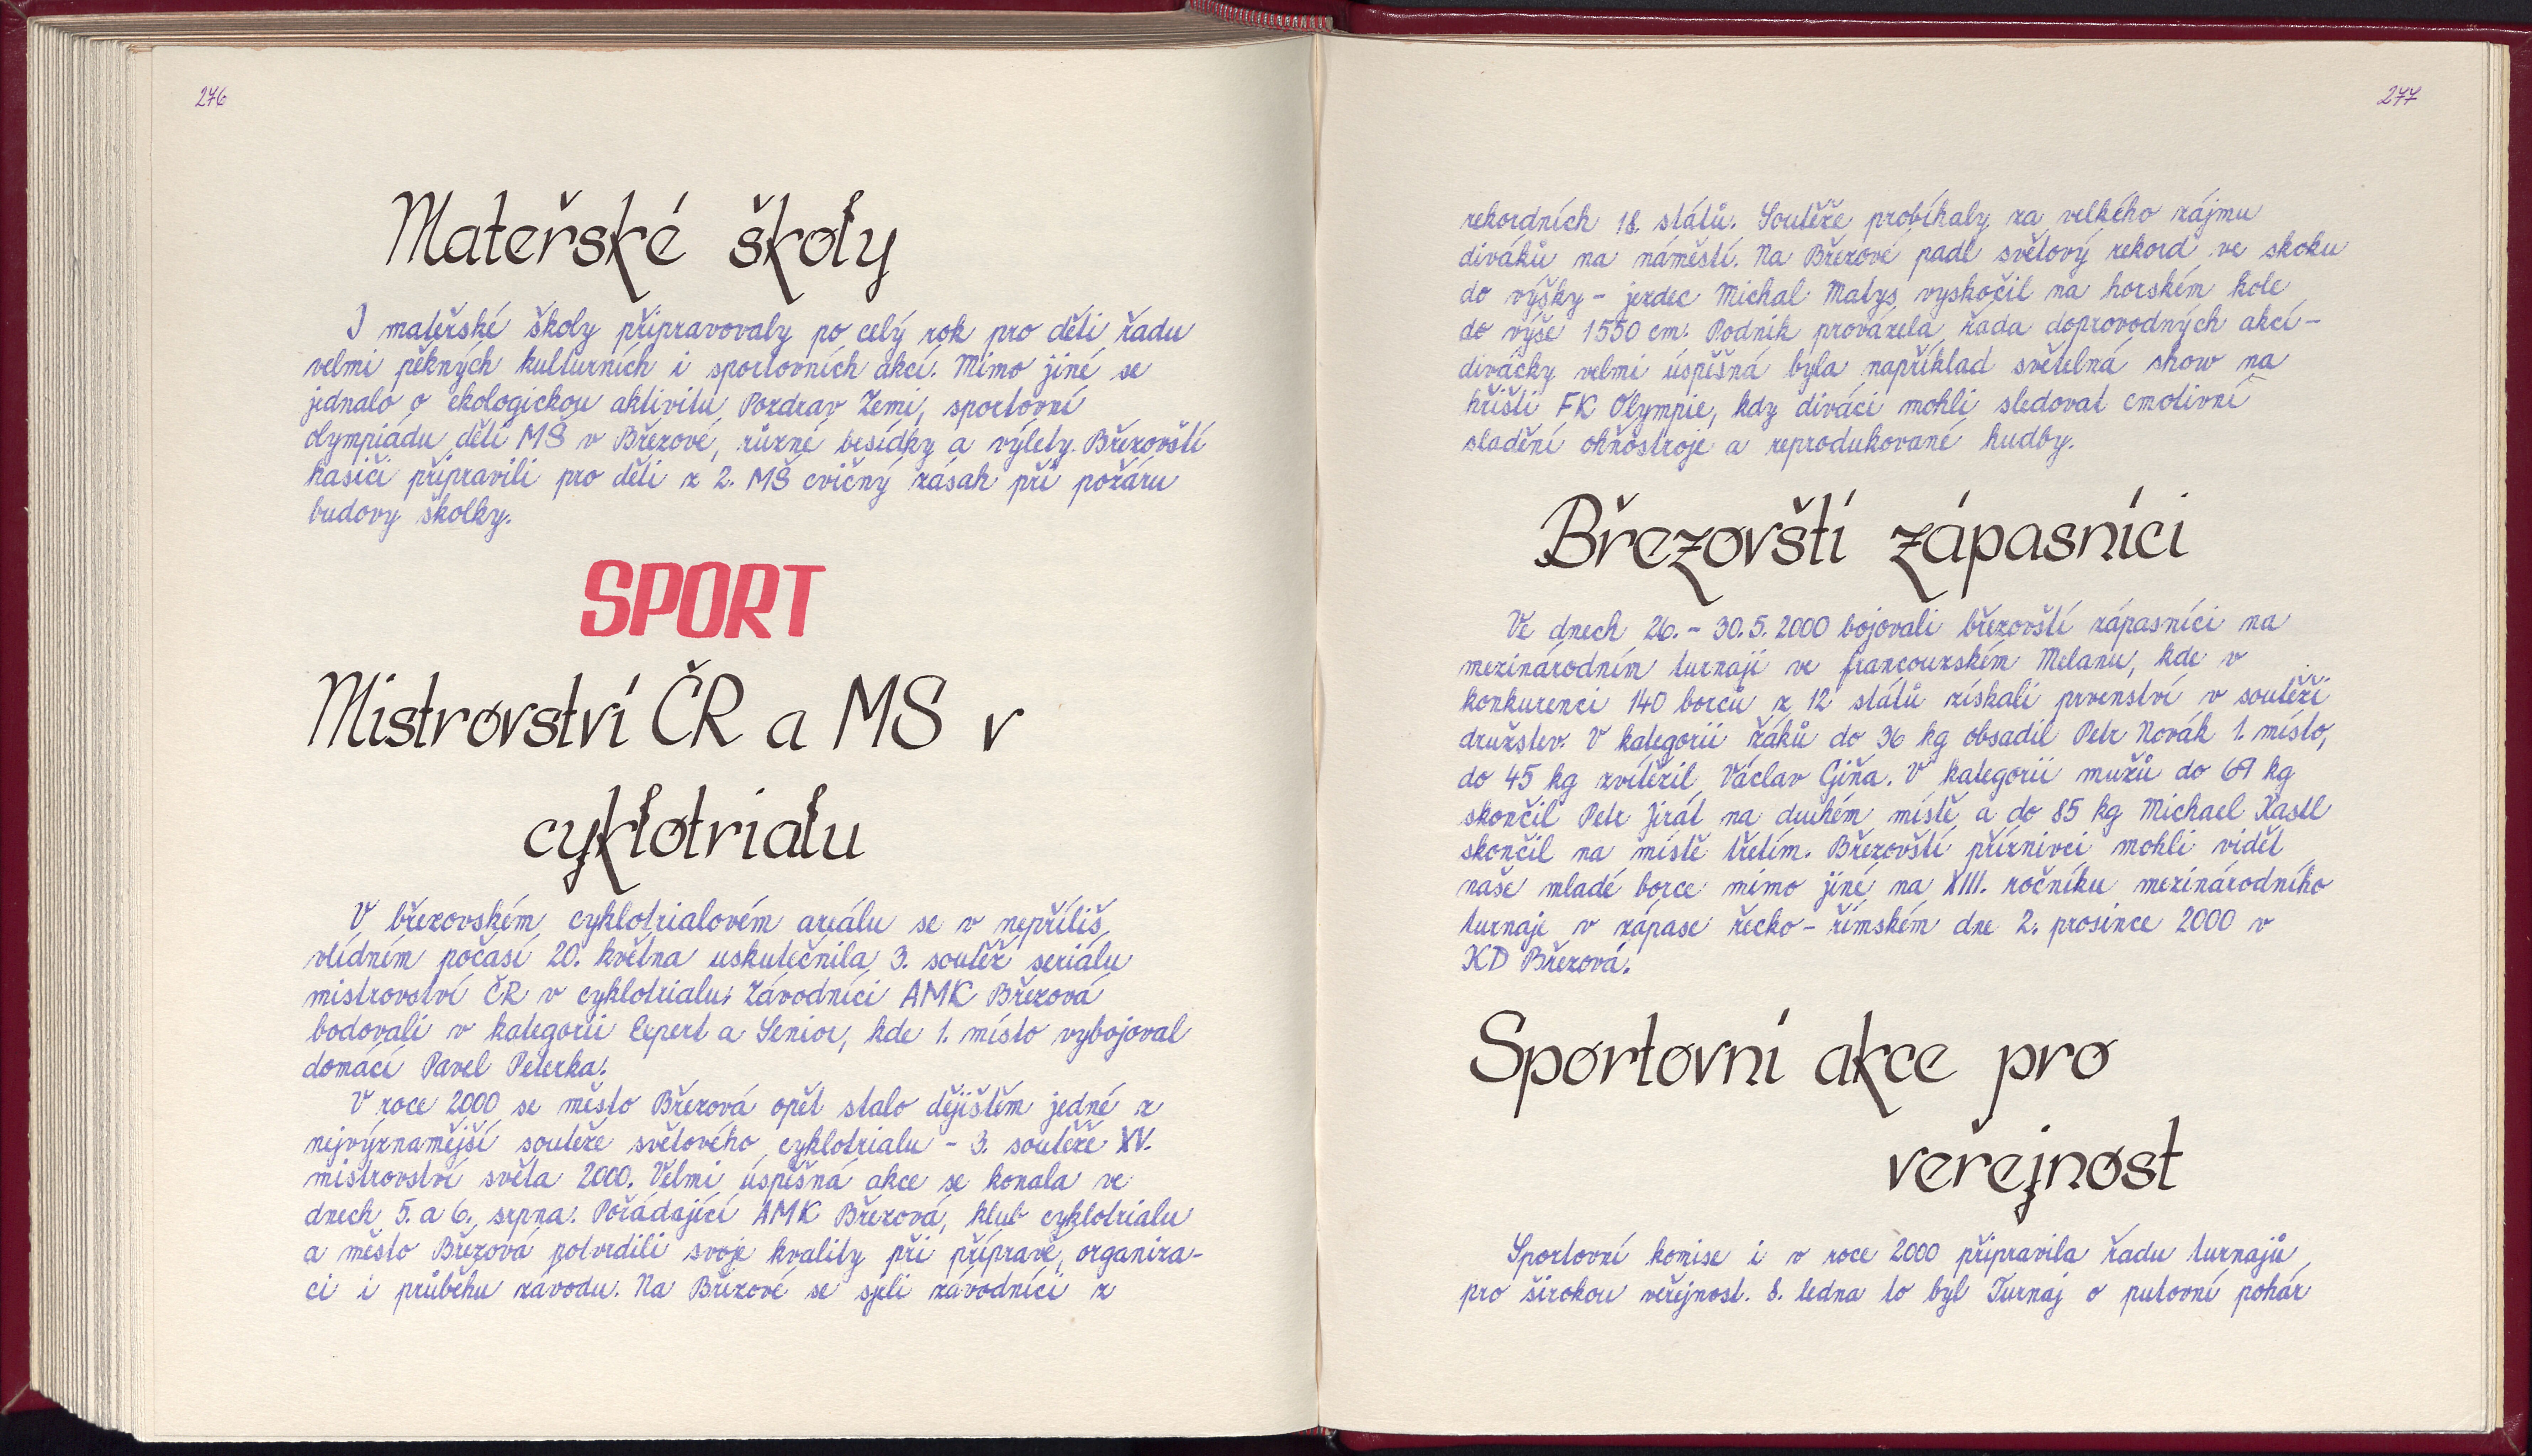 276
Mateřské školy
I mateřské školy připravovaly po celý rok pro děti řadu
velmi pěkných kulturních i sportovních akcí. Mimo jiné se
jednalo o ekologickou aktivitu Pozdrav Zemi, sportovní
olympiádu dětí MŠ v Březové, různé besídky a výlety. Březovští
hasiči připravili pro děti z 2. MŠ cvičný zásah při požáru
budovy školky.
SPORT
Mistrovství ČR a MS v
cyklotrialu
V březovském cyklotrialovém areálu se v nepříliš
vlídném počasí 20. května uskutečnila 3. soutěž seriálu
mistrovství ČR v cyklotrialu. Závodníci AMK Březová
bodovali v kategorii Expert a Senior, kde 1. místo vybojoval
domácí Pavel Peterka.
V roce 2000 se město Březová opět stalo dějištěm jedné z
nejvýznamější soutěže světového cyklotrialu - 3. soutěže XV.
mistrovství světa 2000. Velmi úspěšná akce se konala ve
dnech 5. a 6. srpna. Pořádající AMK Březová, klub cyklotrialu
a město Březová potvrdili svoje kvality při přípravě, organiza-
ci i průběhu závodu. Na Březové se sjeli závodníci z
277
rekordních 18 států. Soutěže probíhaly za velkého zájmu
diváků na náměstí. Na Březové padl světový rekord ve skoku
do výšky - jezdec Michal Matys vyskočil na horském kole
do výše 1550 cm. Podnik provázela řada doprovodných akcí -
divácky velmi úspěšná byla například světelná show na
hřišti FK Olympie, kdy diváci mohli sledovat emotivní
sladění ohňostroje a reprodukované hudby.
Březovští zápasníci
Ve dnech 26. - 30. 5. 2000 bojovali březovští zápasníci na
mezinárodním turnaji ve francouzském Melanu, kde v
konkurenci 140 borců z 12 států získali prvenství v soutěži
družstev. V kategorii žáků do 36 kg obsadil Petr Novák 1. místo,
do 45 kg zvítězil Václav Giňa. V kategorii mužů do 69 kg
skončil Petr Jirát na druhém místě a do 85 kg Michael Kastl
skončil na místě třetím. Březovští příznivci mohli vidět
naše mladé borce mimo jiné na XIII. ročníku mezinárodního
turnaje v zápase řecko - římském dne 2. prosince 2000 v
KD Březová.
Sportovní akce pro
veřejnost
Sportovní komise i v roce 2000 připravila řadu turnajů
pro širokou veřejnost. 8. ledna to byl Turnaj o putovní pohár